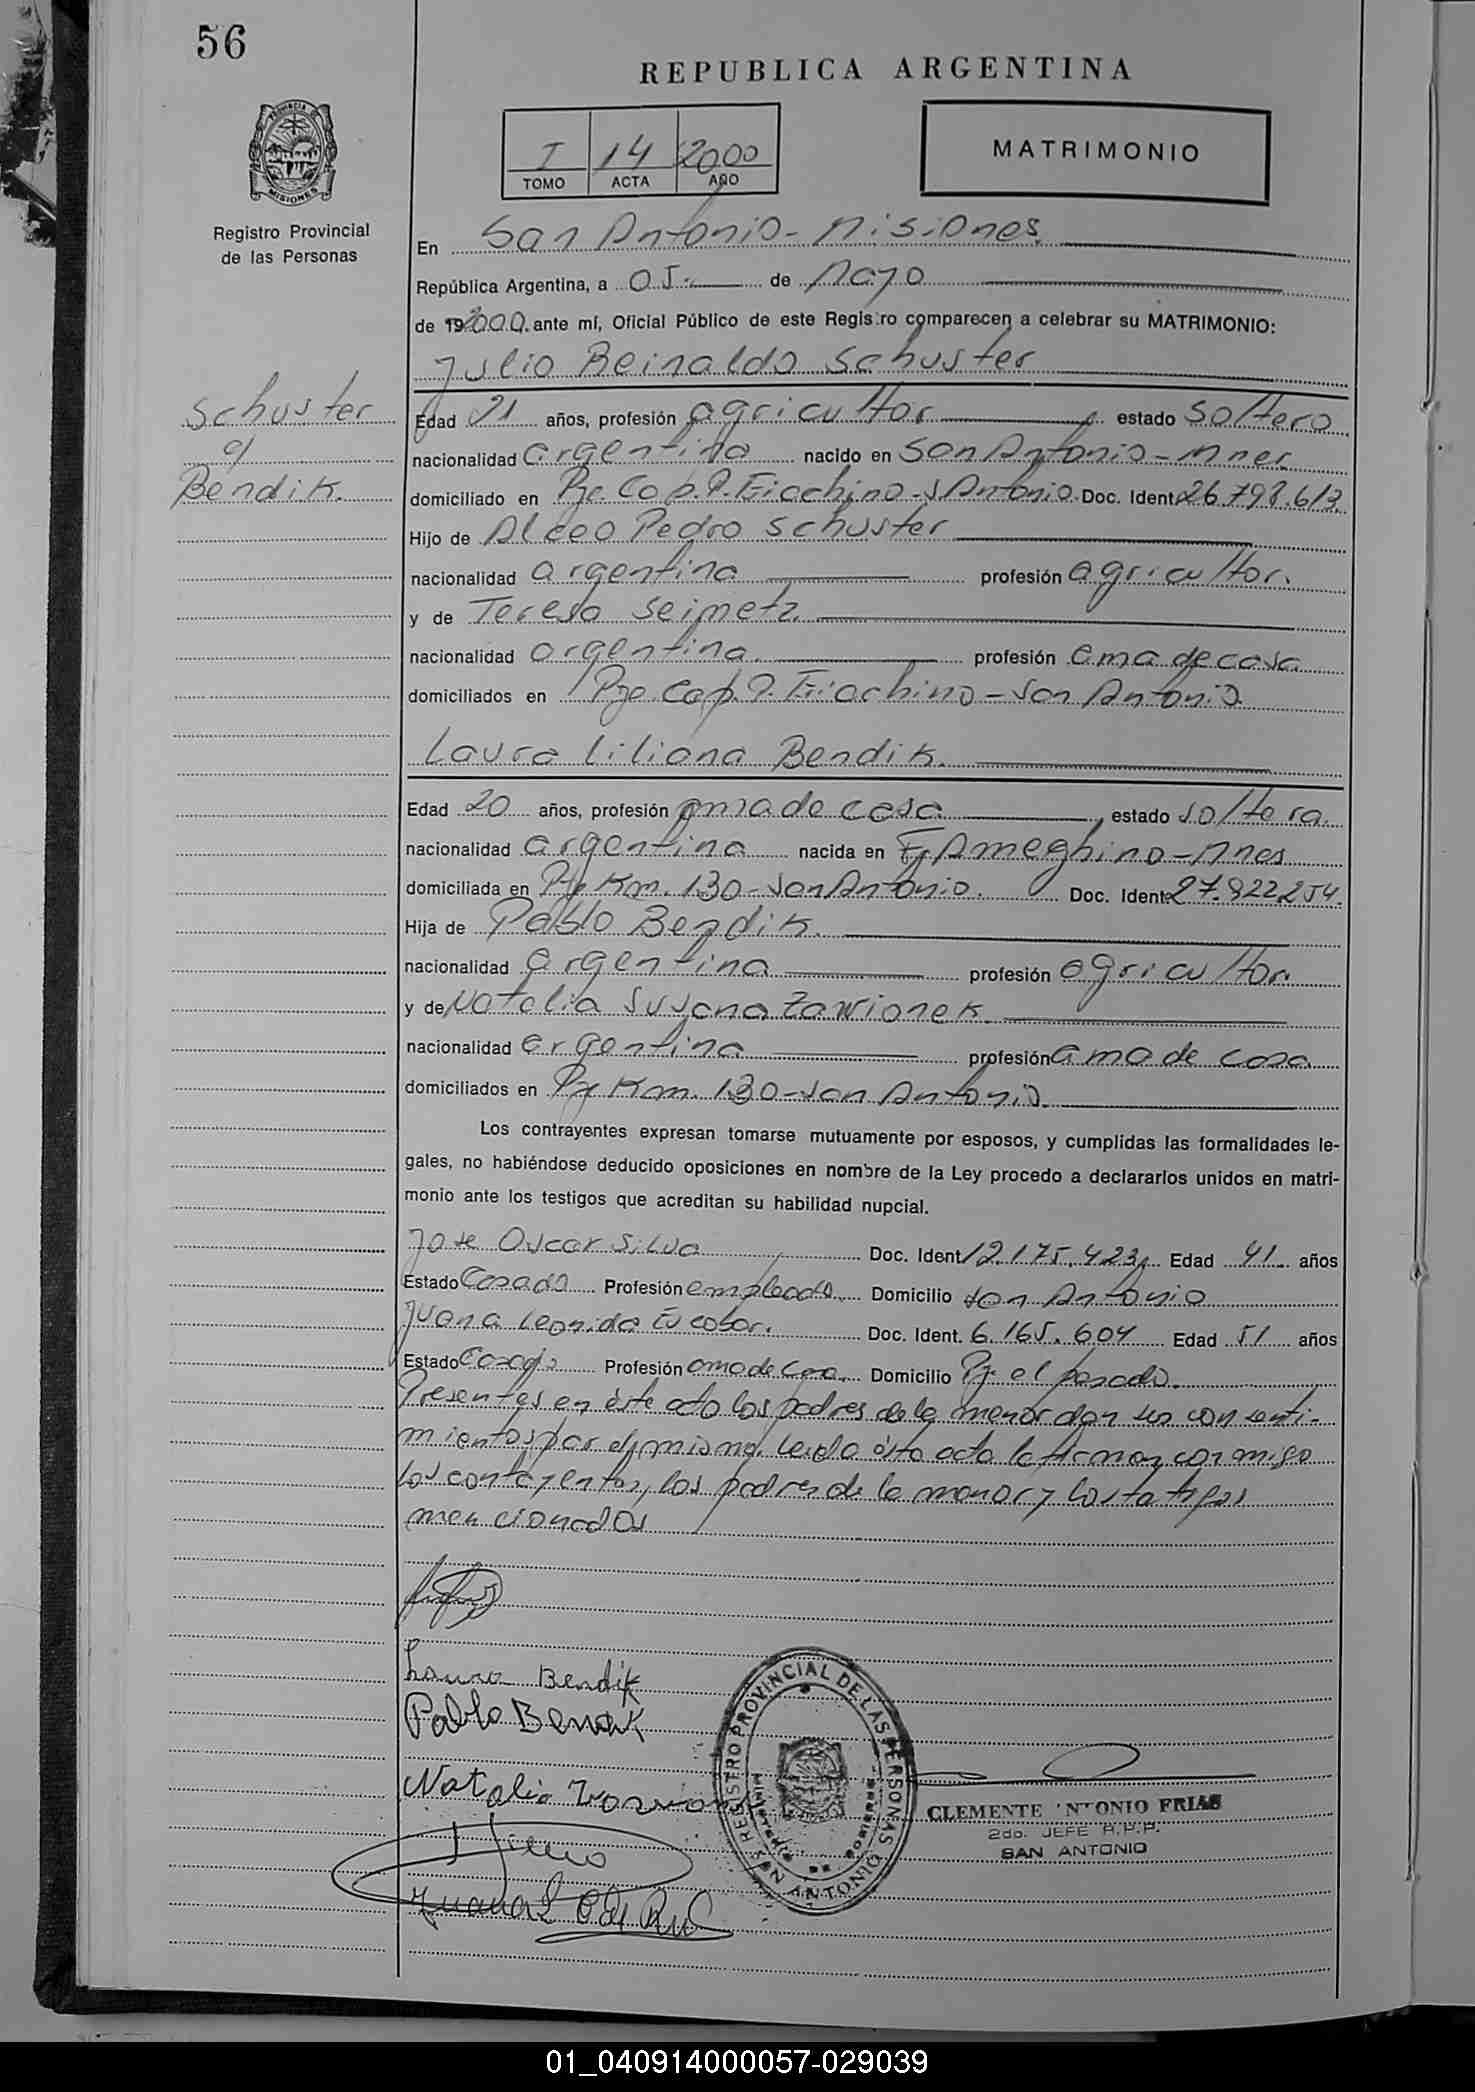 56
REPUBLICA ARGENTINA
PROVINCIA DE MISIONES
Registro Provincial
de las Personas
I 14 2000
TOMO ACTA AÑO
MATRIMONIO
En San Antonio - Misiones.
República Argentina, a 05.- de Mayo
de 192000. ante mí, Oficial Público de este Registro comparecen a celebrar su MATRIMONIO:
Julio Reinaldo Schuster
Schuster
c/
Bendik.
Edad 21 años, profesión agricultor estado soltero
nacionalidad argentina nacido en San Antonio - Mnes.
domiciliado en Pje. Cap. P. Giachino - S Antonio. Doc. Ident. 26.793.613.
Hijo de Alceo Pedro Schuster
nacionalidad argentina profesión agricultor.
y de Teresa Seimetz.
nacionalidad argentina. profesión ama de casa
domiciliados en Pje. Cap. P. Giachino - San Antonio.
Laura Liliana Bendik.
Edad 20 años, profesión ama de casa estado soltera.
nacionalidad argentina nacida en F. Ameghino - Mnes
domiciliada en Pje Km. 130 - San Antonio. Doc. Ident. 27.822.254.
Hija de Pablo Bendik.
nacionalidad argentina profesión agricultor.
y de Natalia Susana Zawionek.
nacionalidad argentina profesión ama de casa
domiciliados en Pje Km. 130 - San Antonio.
Los contrayentes expresan tomarse mutuamente por esposos, y cumplidas las formalidades le-
gales, no habiéndose deducido oposiciones en nombre de la Ley procedo a declararlos unidos en matri-
monio ante los testigos que acreditan su habilidad nupcial.
Jose Oscar Silva Doc. Ident. 12.175.423 Edad 41 años
Estado Casado Profesión empleado Domicilio San Antonio
Juana Leonida Escobar. Doc. Ident. 6.165.604 Edad 51 años
Estado Casada Profesión ama de casa Domicilio Pje el pesado.
Presentes en éste acto los padres de la menor dan su consenti-
mientos por el mismo. Leida ésta acta la firman conmigo
los contayentes, los padres de la menor y los testigos
mencionados
Laura Bendik
Pablo Bendik
Natalia
Juana
REGISTRO PROVINCIAL DE LAS PERSONAS
MINISTERIO DE GOBIERNO
SAN ANTONIO
CLEMENTE ANTONIO FRIAS
2do. JEFE R.P.P.
SAN ANTONIO
01_040914000057-029039